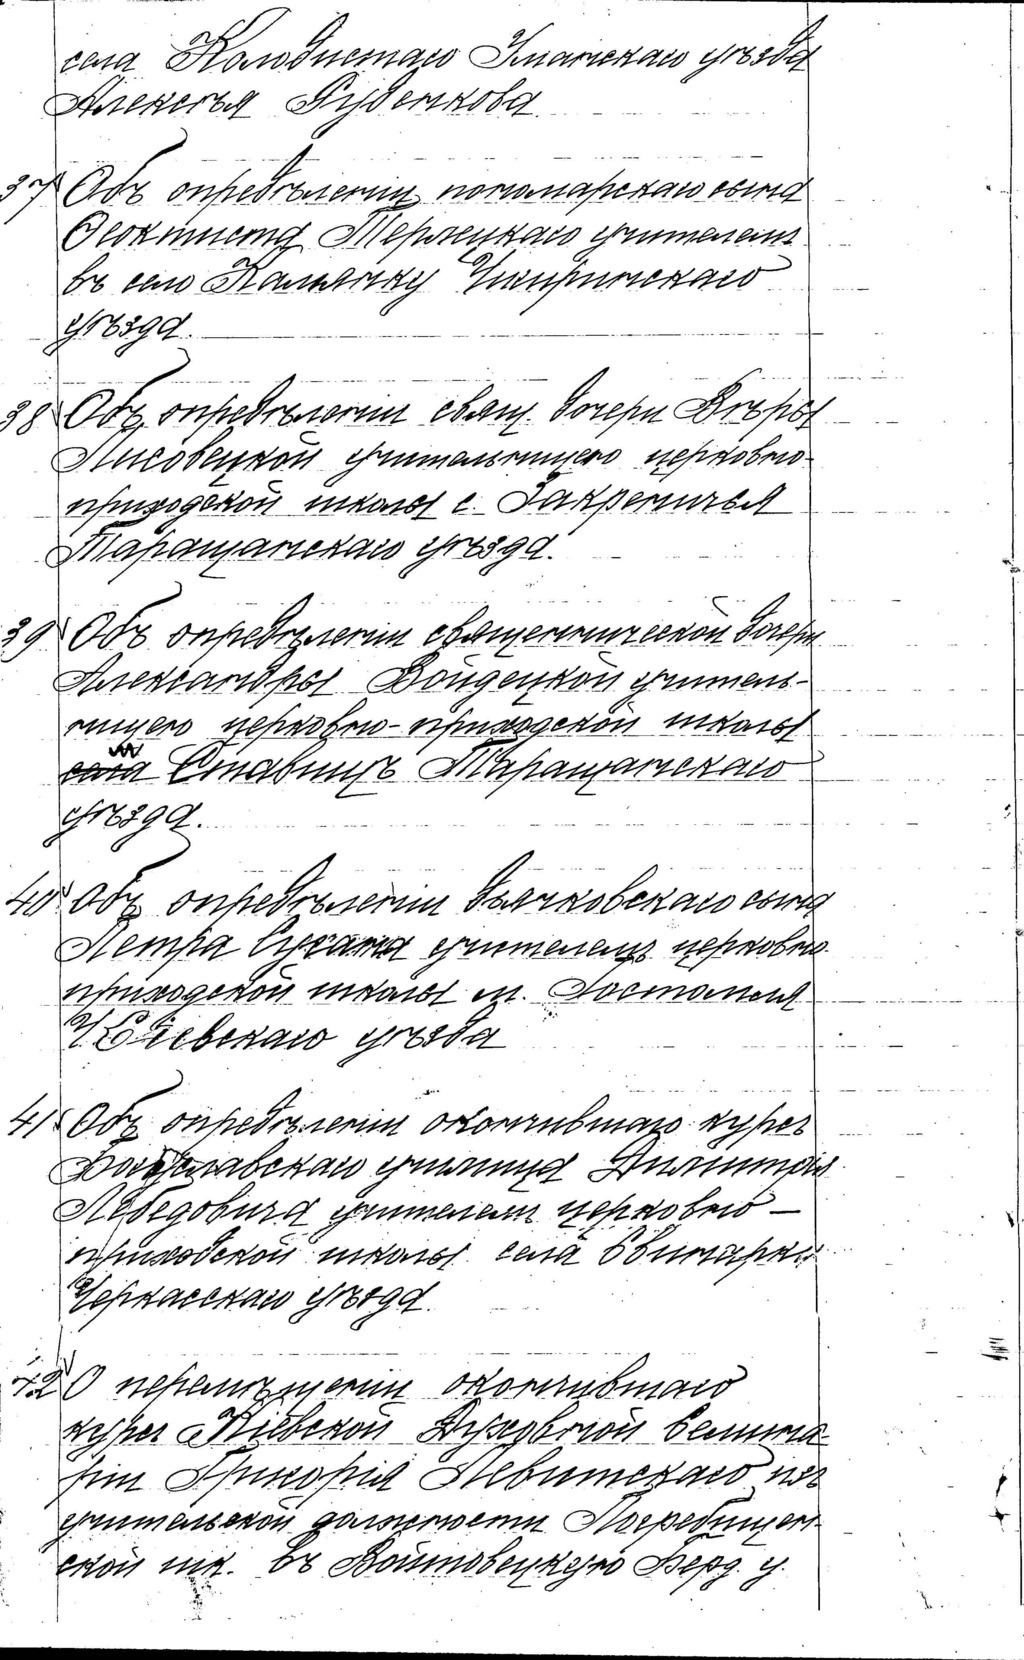 села Колодистаго Уманскаго уѣзда
Алексѣя Руденкова.
37 Объ опредѣленіи пономарскаго сына
Ѳеоктиста Терлецкаго учителемъ
въ село Калантаевку Чигиринскаго
уѣзда.
38 Объ опредѣленіи свящ. дочери Вѣры
Лисовецкой учительницею церковно-
приходской школы с. Закреничья
Таращанскаго уѣзда.
39 Объ опредѣленіи священнической дочери
Александры Войдецкой учитель-
ницею церковно-приходской школы
м. Ставищъ Таращанскаго
уѣзда.
40 Объ опредѣленіи дьячковскаго сына
Петра Сусана учителемъ церковно-
приходской школы м. Гостомля
Кіевскаго уѣзда
41 Объ опредѣленіи окончившаго курсъ
Богуславскаго училища Димитрія
Лебедовича учителемъ церковно-
приходской школы села Свинарки
Черкасскаго уѣзда.
42 О перемѣщеніи окончившаго
курсъ Кіевской Духовной Семина-
ріи Григорія Левитскаго изъ
учительской должности Погребищен-
ской шк. въ Войтовецкую Берд. у.